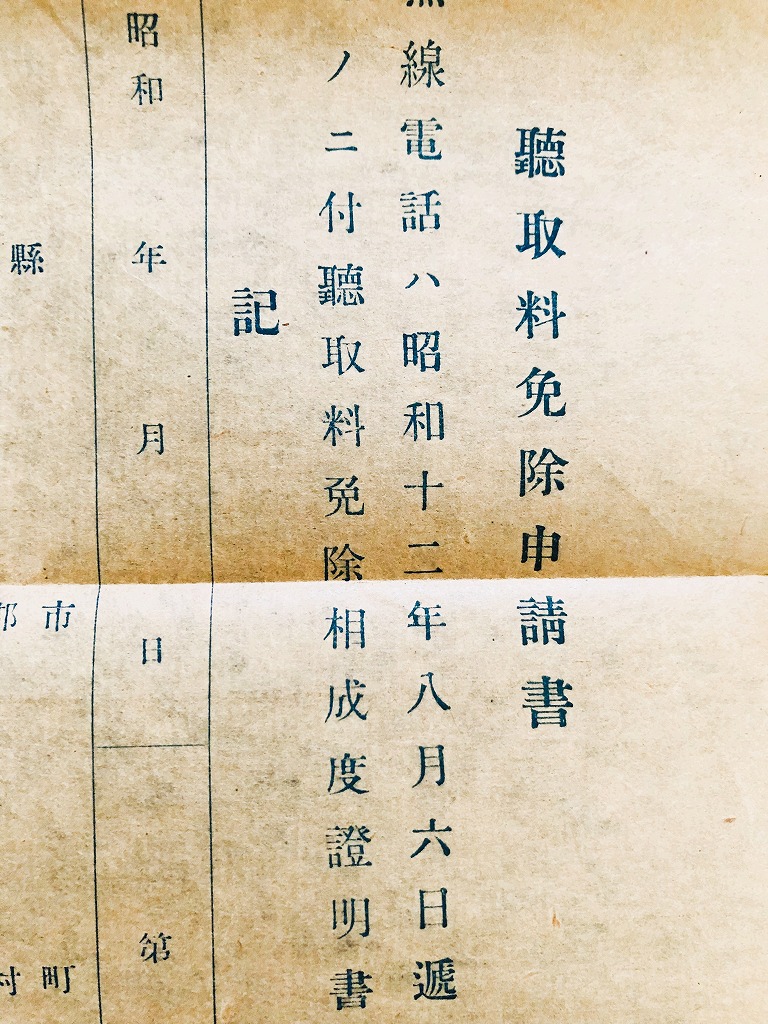 聽取料免除申請書
無線電話ハ昭和十二年八月六日遞
ノニ付聽取料免除相成度證明書
記
昭和 年 月 日 第
縣 市 町
郡 村